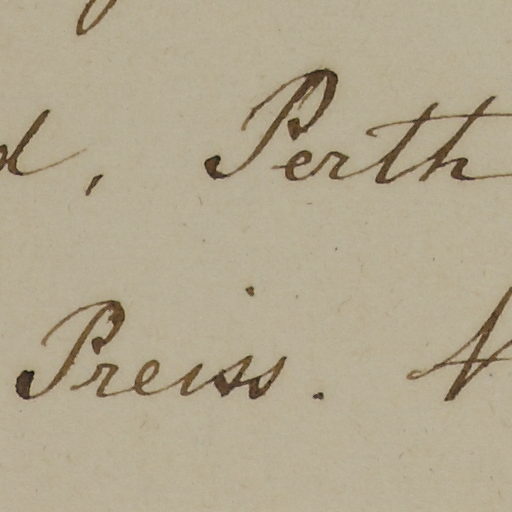 d, Perth
Preiss. N